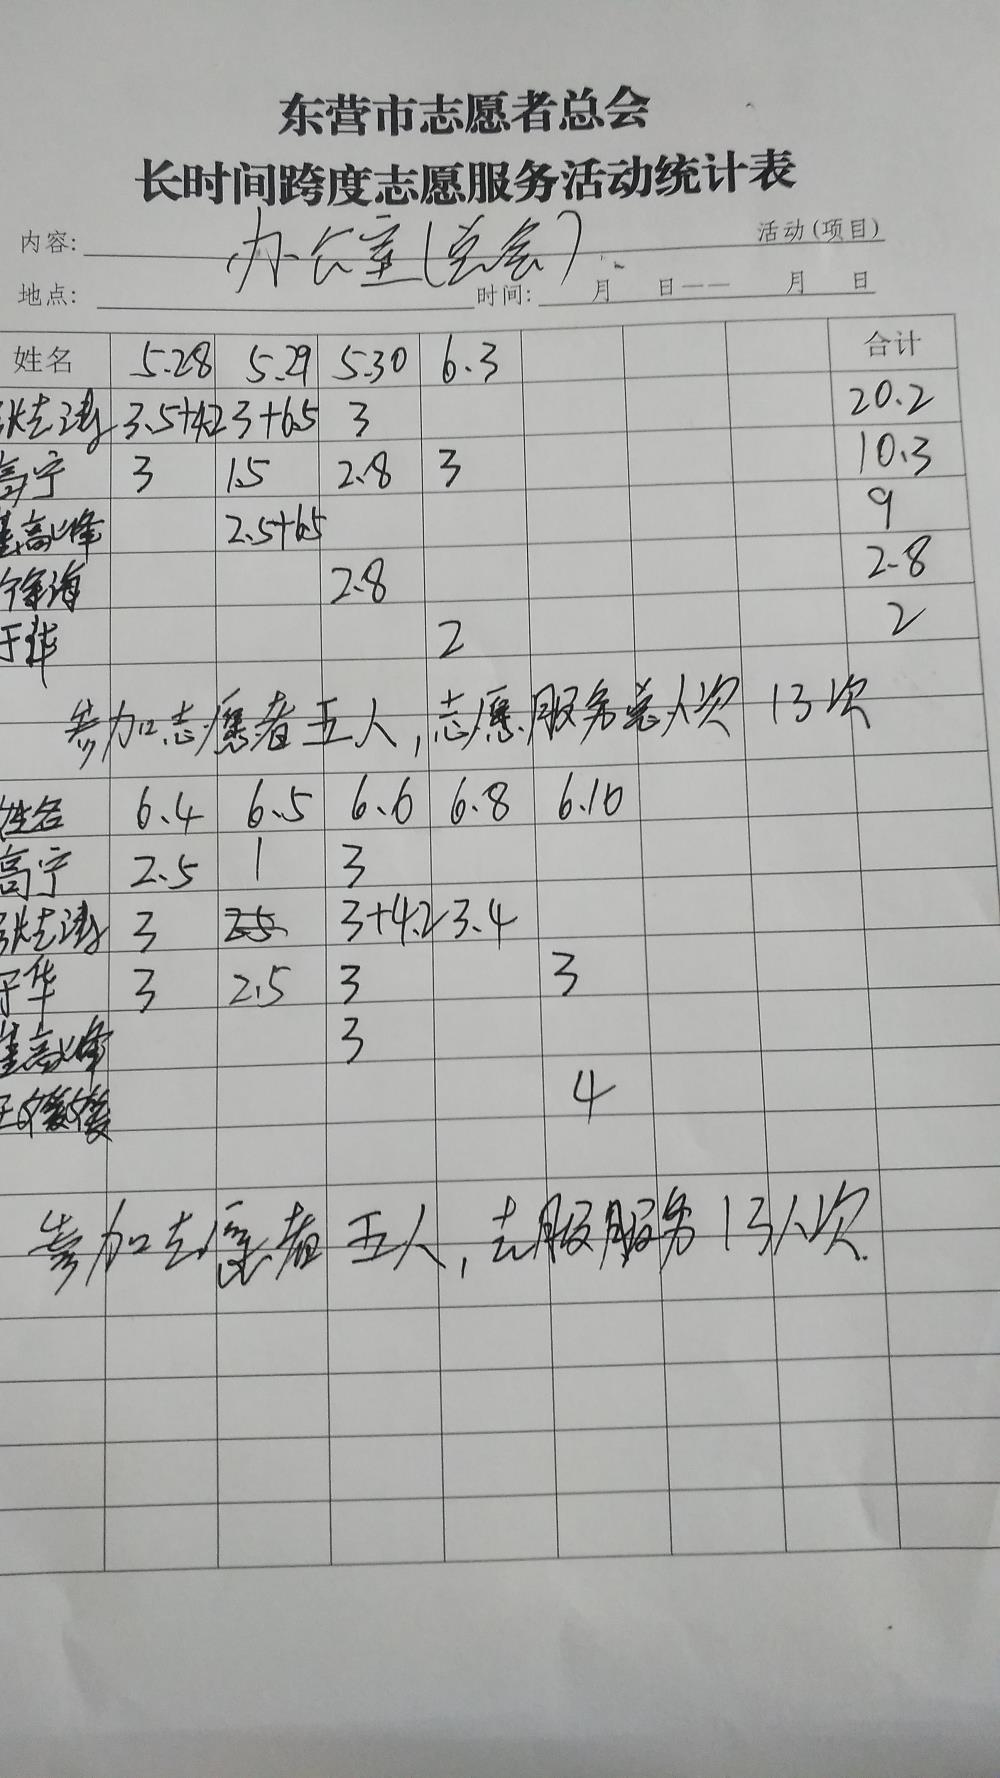 东营市志愿者总会
长时间跨度志愿服务活动统计表
内容: 办公室(总会) 活动(项目)
地点: 时间: 月 日—— 月 日
姓名 5.28 5.29 5.30 6.3 合计
张志涛 3.5+4.2 3+6.5 3 20.2
高宁 3 1.5 2.8 3 10.3
高峰 2.5+6.5 9
海 2.8 2.8
于华 2 2
参加志愿者五人,志愿服务总人次 13次
姓名 6.4 6.5 6.6 6.8 6.10
高宁 2.5 1 3
张志涛 3 2.5 3+4.2 3.4
于华 3 2.5 3 3
高峰 3
王媛媛 4
参加志愿者五人,志服服务13人次